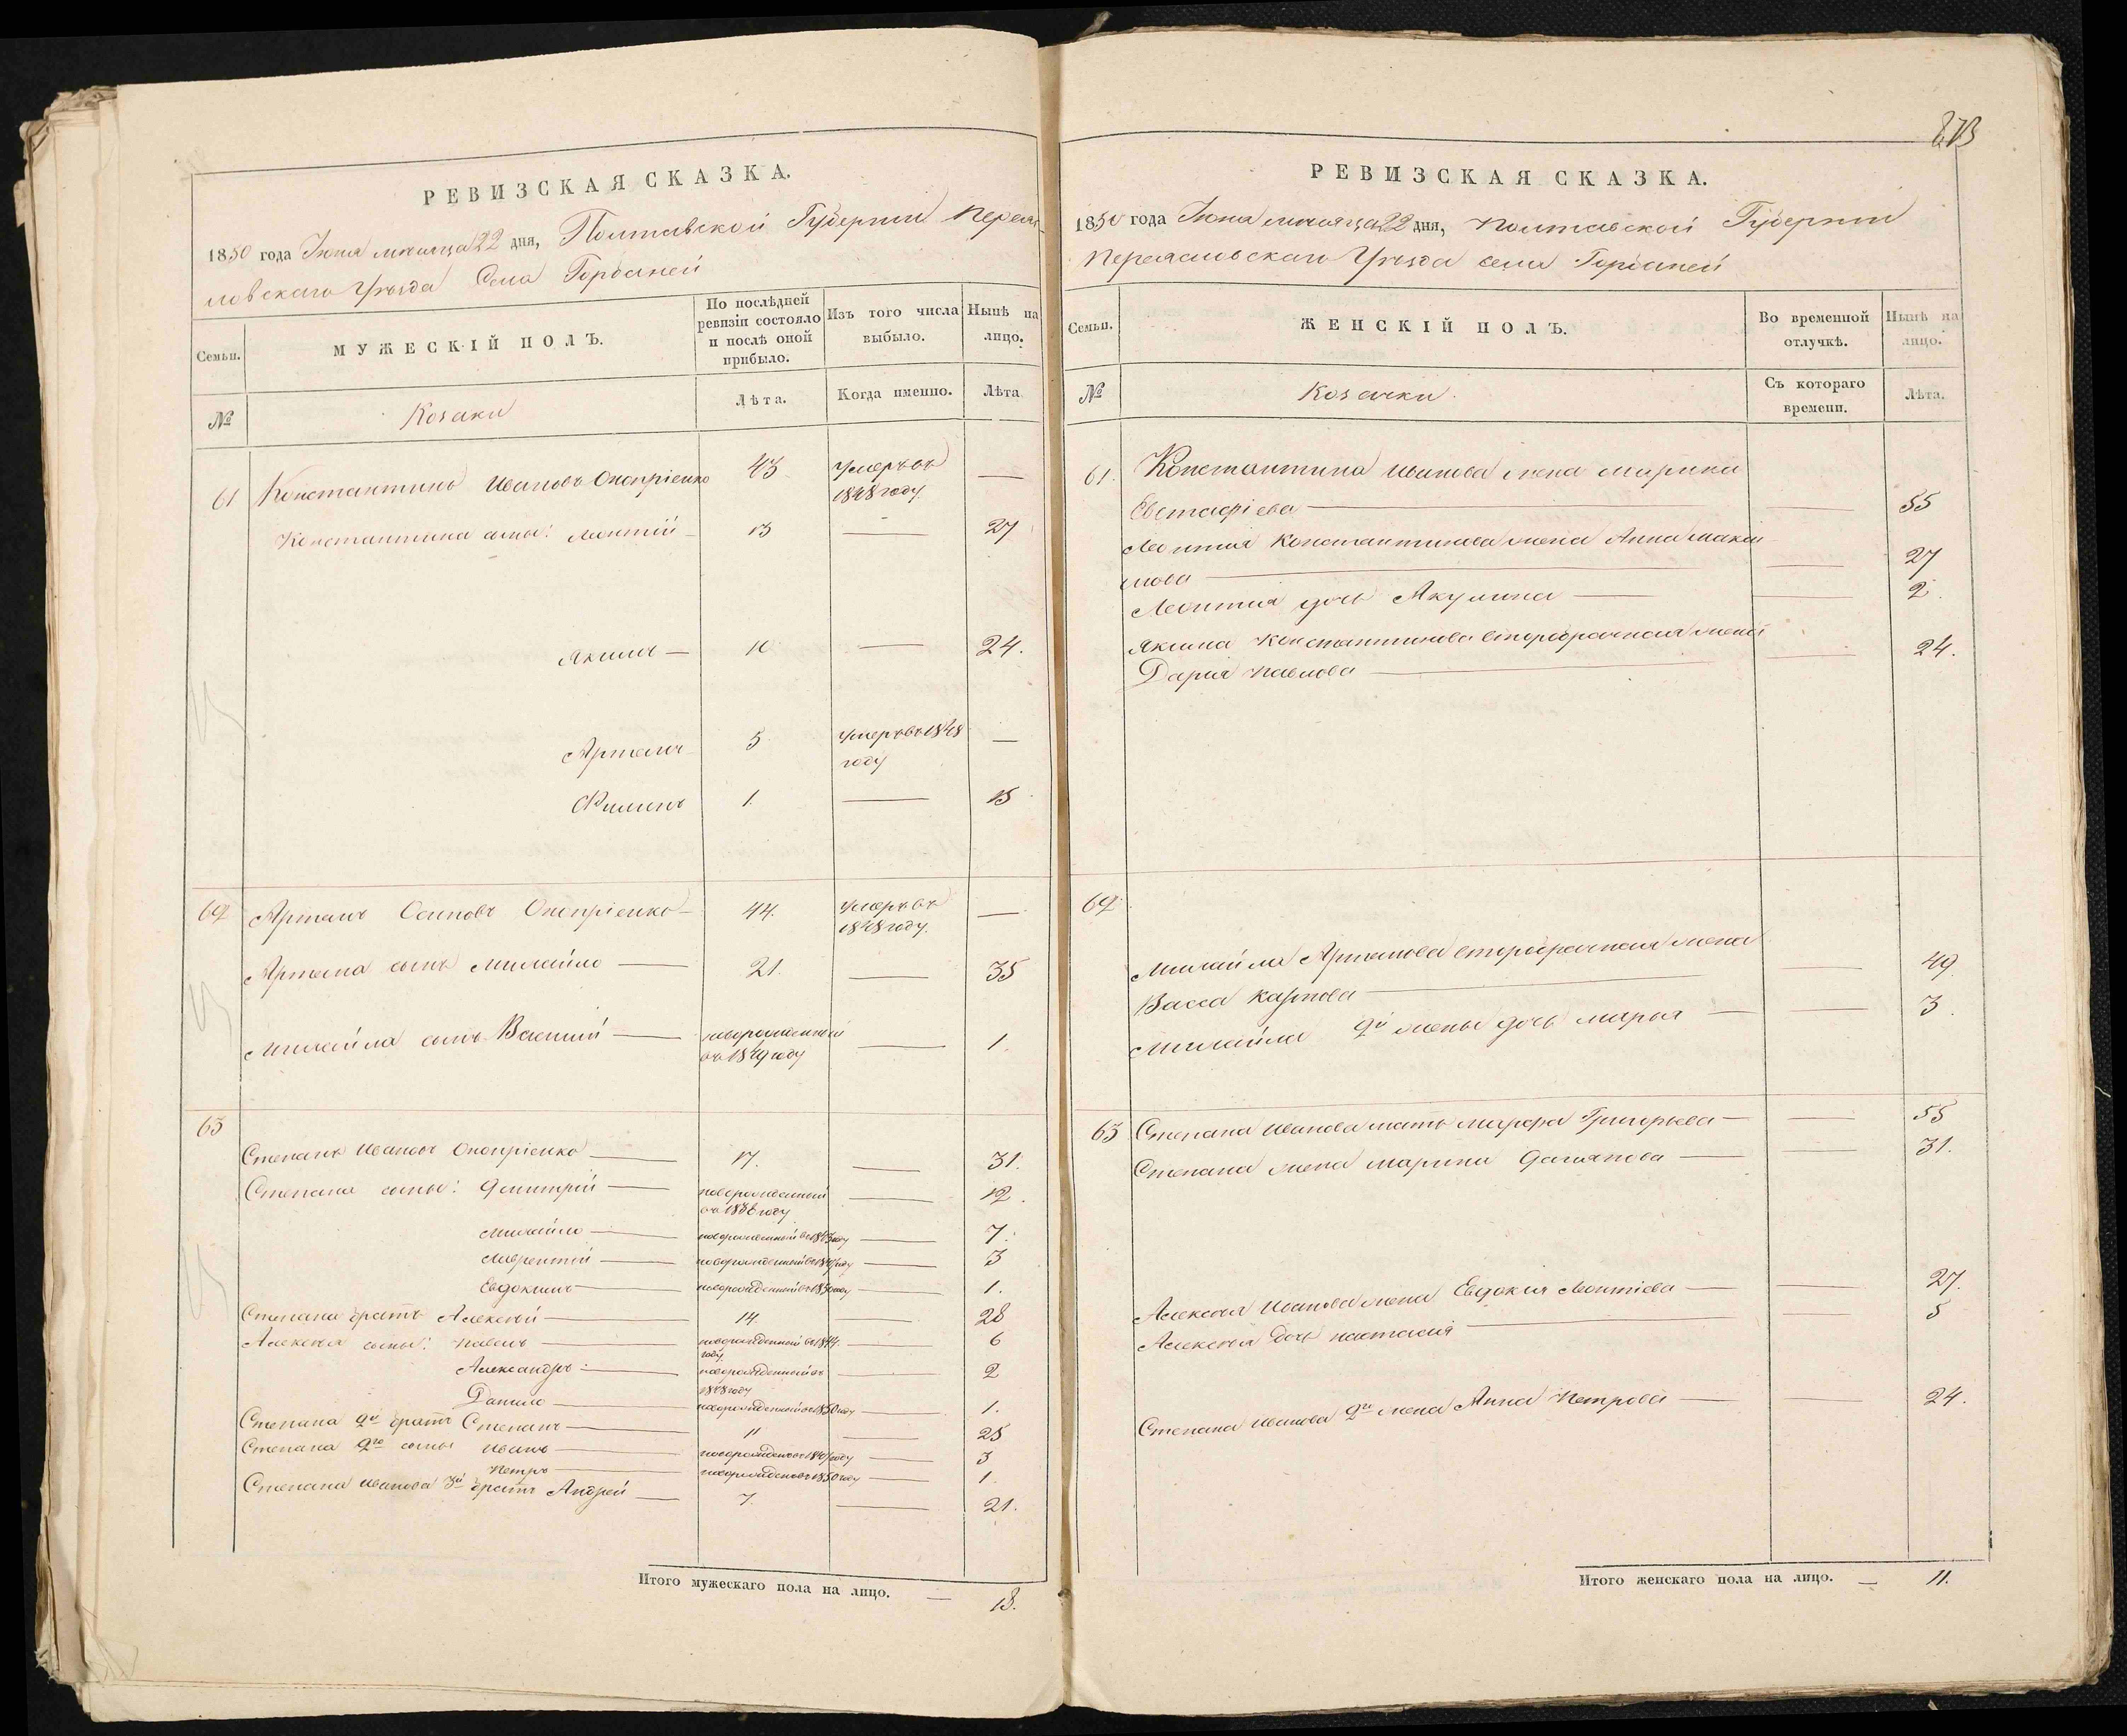 РЕВИЗСКАЯ СКАЗКА.
1850 года Іюня месяца 22 дня, Полтавской Губерніи Переяс-
ловскаго Уѣзда Села Горбаней
Семьи.
МУЖЕСКІЙ ПОЛЪ.
По послѣдней ревизіи состояло и послѣ оной прибыло.
Изъ того числа выбыло.
Нынѣ на лицо.
№
Козаки
Лѣта.
Когда именно.
Лѣта
61 Константинъ Ивановъ Оноприенко 43 умеръ въ 1848 году. —
Константина сыны: Леонтій 13 — 27
Акимъ — 10 — 24.
Артемъ 5 умеръ въ 1848 году —
Филипъ 1. — 15
62 Артемъ Осиповъ Оноприенко 44. умеръ въ 1848 году. —
Артема сынъ Михайло — 21. — 35
Михайла сынъ Василий — новорожденный въ 1849 году — 1.
63
Степанъ Ивановъ Оноприенко — 17. — 31.
Степана сыны: Дмитрій — новорожденный въ 1838 году — 12.
Михайло — новорожденный въ 1843 году — 7.
Лаврентій — новорожденный въ году — 3
Евдокимъ — новорожденный въ 1850 году — 1.
Степана братъ Алексѣй — 14. — 28
Алексѣя сыны: Павелъ — новорожденный въ 1844. году — 6
Александръ — новорожденный въ 1848 году — 2
Данило — новорожденный въ 1850 году — 1.
Степана 2й братъ Степанъ — 11 — 25
Степана 2го сыны Иванъ — новорожденъ въ году — 3
Петръ — новорожденъ въ 1850 году — 1.
Степана Иванова 3й братъ Андрей — 7. — 21.
Итого мужескаго пола на лицо. — 18.
273
РЕВИЗСКАЯ СКАЗКА.
1850 года Іюня месяца 22 дня, Полтавской Губерніи
Переясловскаго Уѣзда села Горбаней
Семьи.
ЖЕНСКІЙ ПОЛЪ.
Во временной отлучкѣ.
Нынѣ на лицо.
№
Козачки.
Съ котораго времени.
Лѣта.
61. Константина Иванова жена Марина
Евстафіева — — 55
Леонтія Константинова жена Анна Макси
мова — — 27
Леонтія дочь Акулина — — 2.
Акима Константинова второбрачная жена
Дарія Павлова — — 24.
62
Михайла Артемова второбрачная жена
Васса Карпова — — 49.
Михайла 2й жены дочь Марья — — 3.
63 Степана Иванова мать Марфа Григорьева — — 55
Степана жена Марина Дамянова — — 31.
Алексѣя Иванова жена Евдокія Леонтіева — — 27.
Алексѣя дочь Настасія — — 5
Степана Иванова 2го жена Анна Петрова — — 24.
Итого женскаго пола на лицо. — 11.